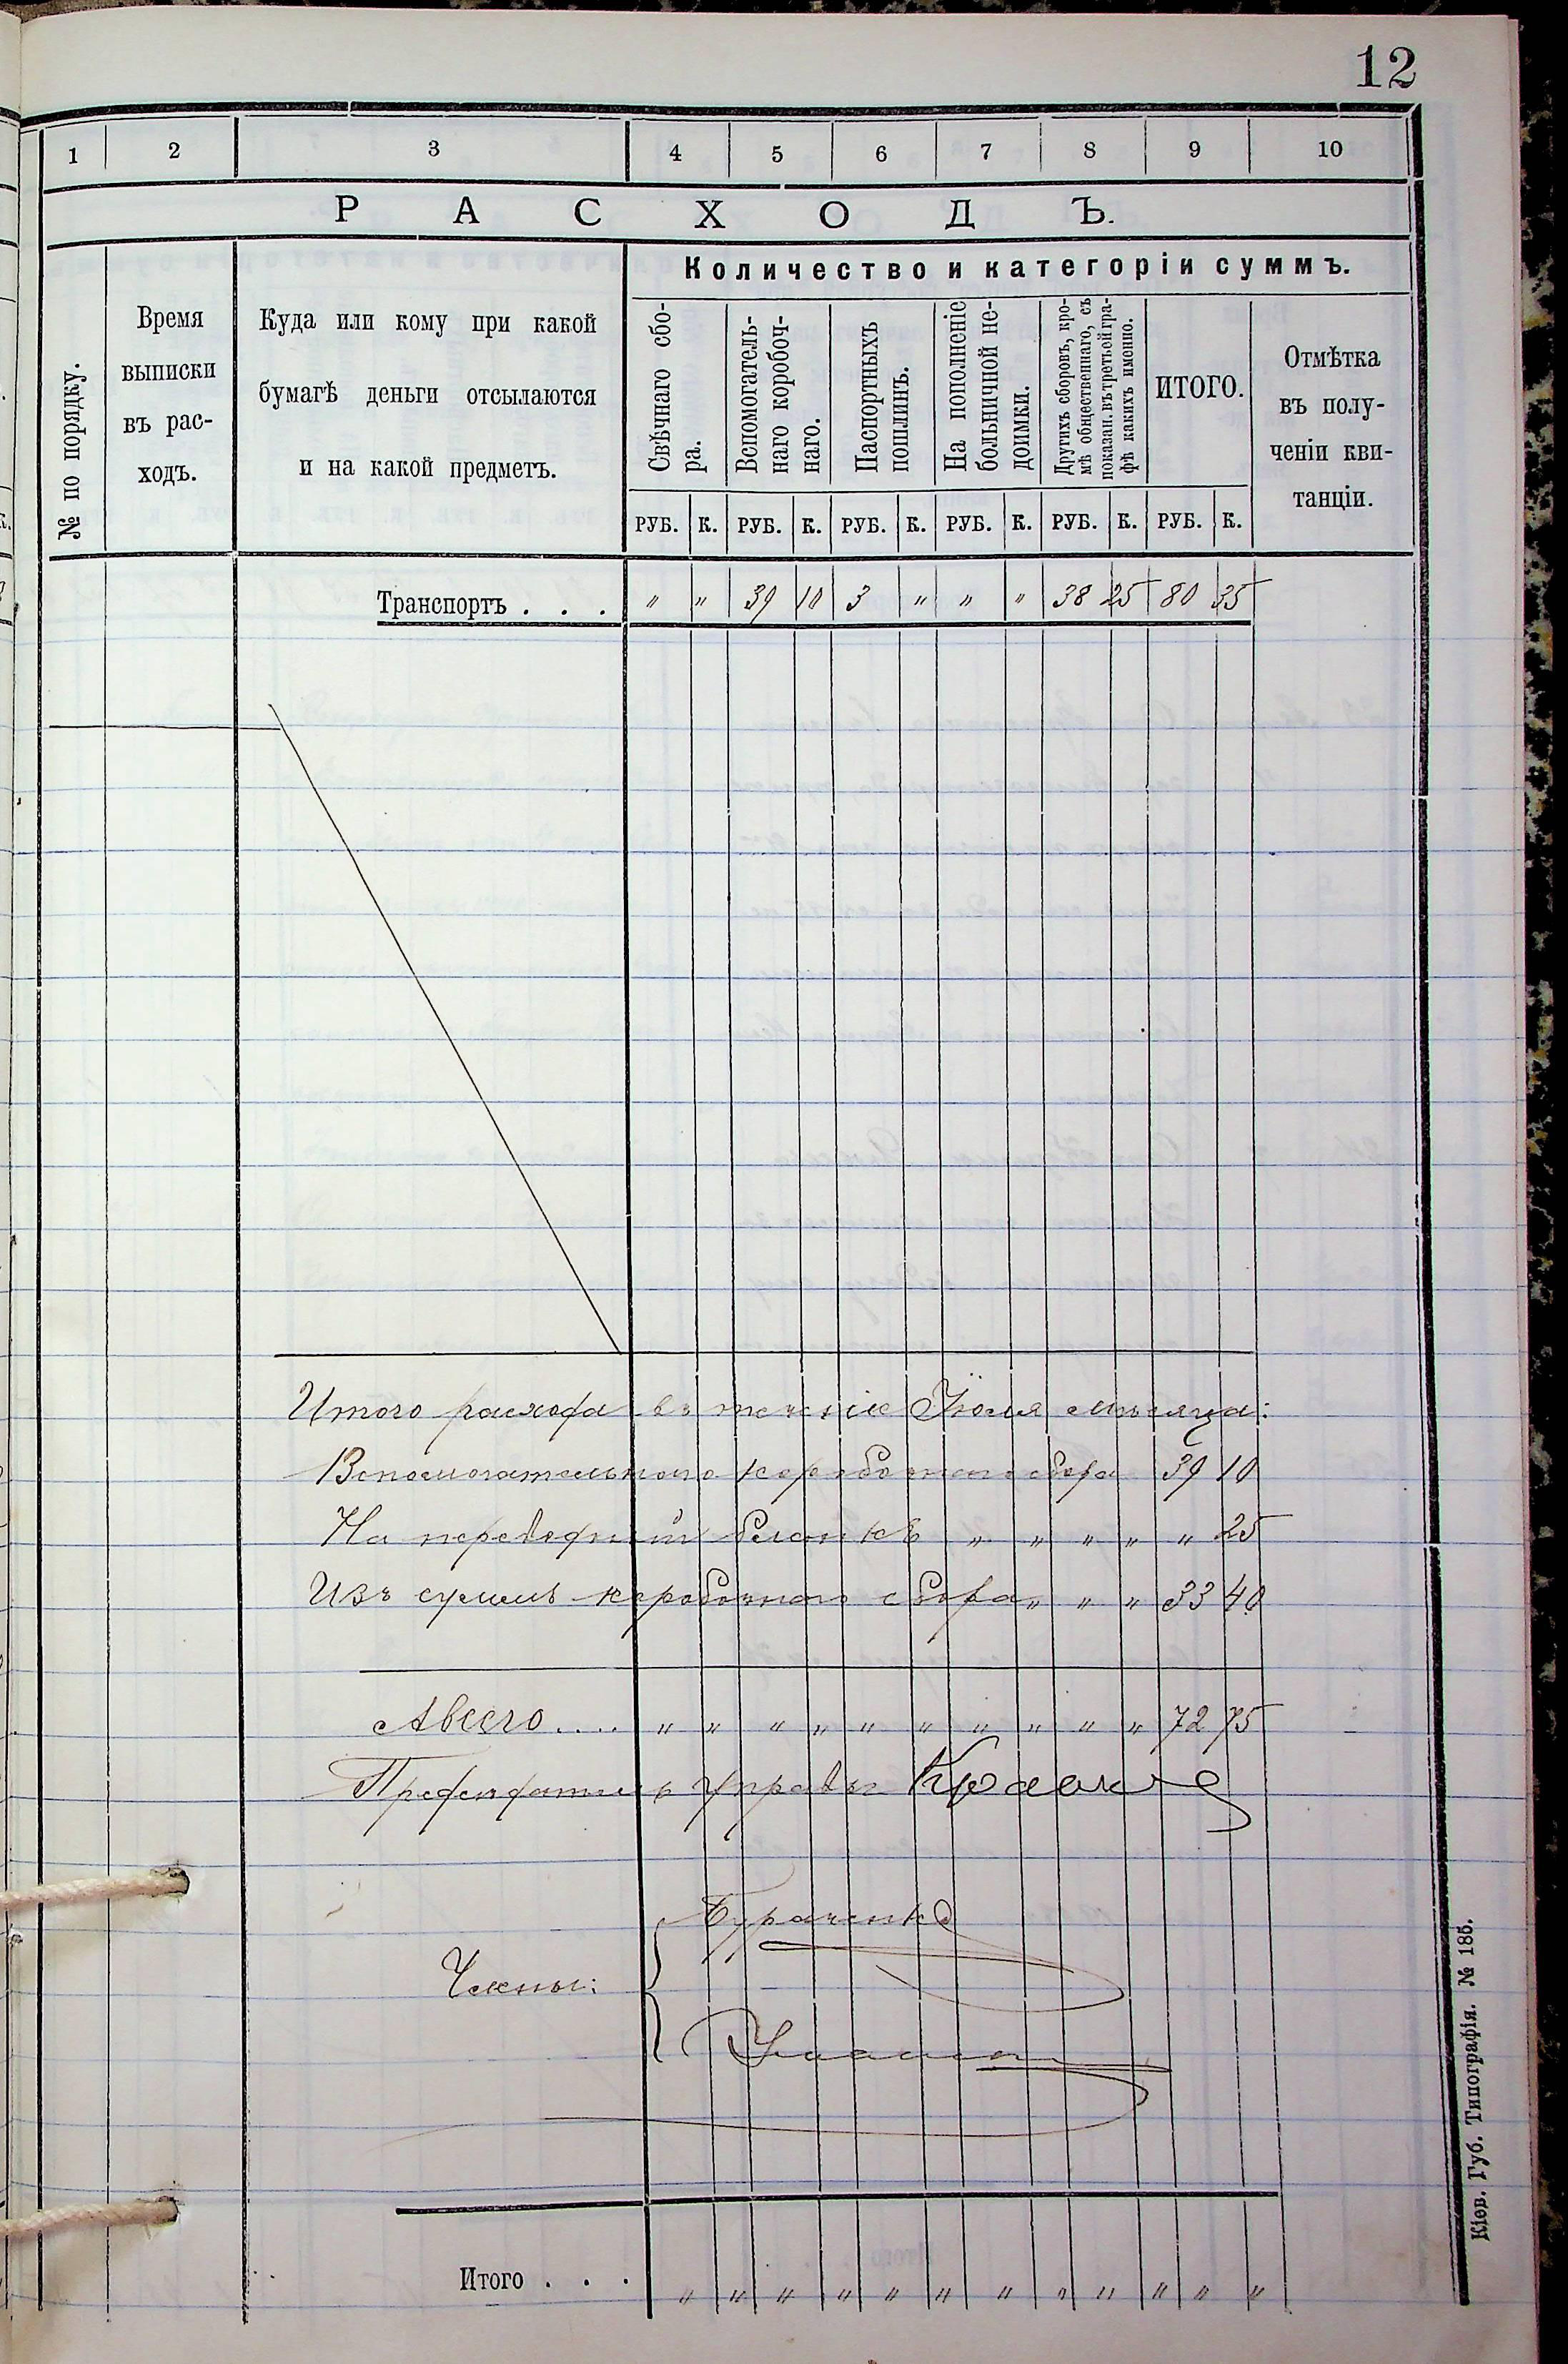 12
1 2 3 4 5 6 7 8 9 10
РАСХОДЪ.
Количество и категоріи суммъ.
№ по порядку.
Время
выписки
въ рас-
ходъ.
Куда или кому при какой
бумагѣ деньги отсылаются
и на какой предметъ.
Свѣчнаго сбо-
ра.
Вспомогатель-
наго коробоч-
наго.
Паспортныхъ
пошлинъ.
На пополненіе
больничной не-
доимки.
Другихъ сборовъ, кро-
мѣ общественнаго, съ
показан. въ третьей гра-
фѣ какихъ именно.
ИТОГО.
Отмѣтка
въ полу-
ченіи кви-
танціи.
РУБ. К. РУБ. К. РУБ. К. РУБ. К. РУБ. К. РУБ. К.
Транспортъ . . . " " 39 10 3 " " " 38 25 80 35
Итого расхода въ теченіе Іюля мѣсяца:
Вспомогательнаго коробочнаго сбора 39 10
На переводный бланкъ " " " " " 25
Изъ суммъ коробочнаго сбора " " " 33 40
А всего.... " " " " " " " " " " 72 75
Предсѣдатель Управы
Бураченко
Члены:
Итого . . . " " " " " " " " " " " "
Кіев. Губ. Типографія. № 185.